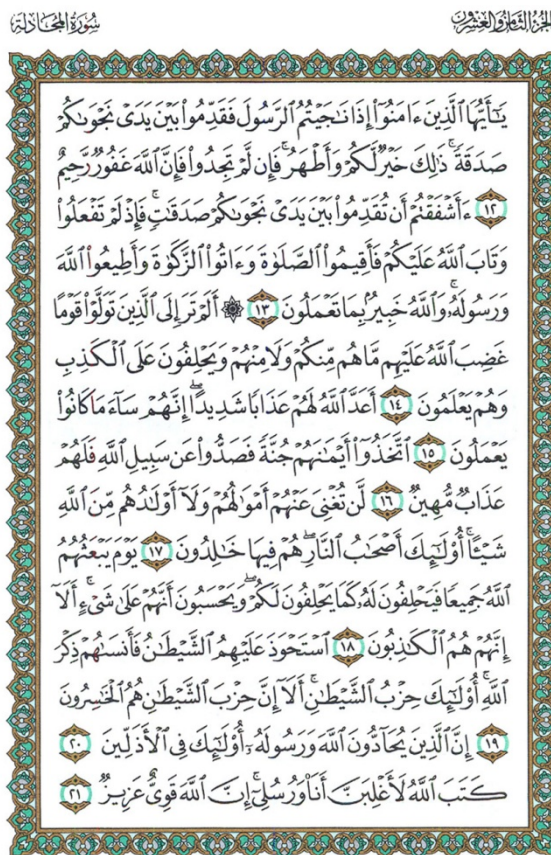 الجزء الثامن والعشرون
سورة المجادلة
يَٰٓأَيُّهَا ٱلَّذِينَ ءَامَنُوٓا۟ إِذَا نَٰجَيْتُمُ ٱلرَّسُولَ فَقَدِّمُوا۟ بَيْنَ يَدَىْ نَجْوَىٰكُمْ
صَدَقَةً ۚ ذَٰلِكَ خَيْرٌ لَّكُمْ وَأَطْهَرُ ۚ فَإِن لَّمْ تَجِدُوا۟ فَإِنَّ ٱللَّهَ غَفُورٌ رَّحِيمٌ
١٢ ءَأَشْفَقْتُمْ أَن تُقَدِّمُوا۟ بَيْنَ يَدَىْ نَجْوَىٰكُمْ صَدَقَٰتٍ ۚ فَإِذْ لَمْ تَفْعَلُوا۟
وَتَابَ ٱللَّهُ عَلَيْكُمْ فَأَقِيمُوا۟ ٱلصَّلَوٰةَ وَءَاتُوا۟ ٱلزَّكَوٰةَ وَأَطِيعُوا۟ ٱللَّهَ
وَرَسُولَهُۥ ۚ وَٱللَّهُ خَبِيرٌۢ بِمَا تَعْمَلُونَ ١٣ ۞ أَلَمْ تَرَ إِلَى ٱلَّذِينَ تَوَلَّوْا۟ قَوْمًا
غَضِبَ ٱللَّهُ عَلَيْهِم مَّا هُم مِّنكُمْ وَلَا مِنْهُمْ وَيَحْلِفُونَ عَلَى ٱلْكَذِبِ
وَهُمْ يَعْلَمُونَ ١٤ أَعَدَّ ٱللَّهُ لَهُمْ عَذَابًا شَدِيدًا ۖ إِنَّهُمْ سَآءَ مَا كَانُوا۟
يَعْمَلُونَ ١٥ ٱتَّخَذُوٓا۟ أَيْمَٰنَهُمْ جُنَّةً فَصَدُّوا۟ عَن سَبِيلِ ٱللَّهِ فَلَهُمْ
عَذَابٌ مُّهِينٌ ١٦ لَّن تُغْنِىَ عَنْهُمْ أَمْوَٰلُهُمْ وَلَآ أَوْلَٰدُهُم مِّنَ ٱللَّهِ
شَيْـًٔا ۚ أُو۟لَٰٓئِكَ أَصْحَٰبُ ٱلنَّارِ ۖ هُمْ فِيهَا خَٰلِدُونَ ١٧ يَوْمَ يَبْعَثُهُمُ
ٱللَّهُ جَمِيعًا فَيَحْلِفُونَ لَهُۥ كَمَا يَحْلِفُونَ لَكُمْ ۖ وَيَحْسَبُونَ أَنَّهُمْ عَلَىٰ شَىْءٍ ۚ أَلَآ
إِنَّهُمْ هُمُ ٱلْكَٰذِبُونَ ١٨ ٱسْتَحْوَذَ عَلَيْهِمُ ٱلشَّيْطَٰنُ فَأَنسَىٰهُمْ ذِكْرَ
ٱللَّهِ ۚ أُو۟لَٰٓئِكَ حِزْبُ ٱلشَّيْطَٰنِ ۚ أَلَآ إِنَّ حِزْبَ ٱلشَّيْطَٰنِ هُمُ ٱلْخَٰسِرُونَ
١٩ إِنَّ ٱلَّذِينَ يُحَآدُّونَ ٱللَّهَ وَرَسُولَهُۥٓ أُو۟لَٰٓئِكَ فِى ٱلْأَذَلِّينَ ٢٠
كَتَبَ ٱللَّهُ لَأَغْلِبَنَّ أَنَا۠ وَرُسُلِىٓ ۚ إِنَّ ٱللَّهَ قَوِىٌّ عَزِيزٌ ٢١